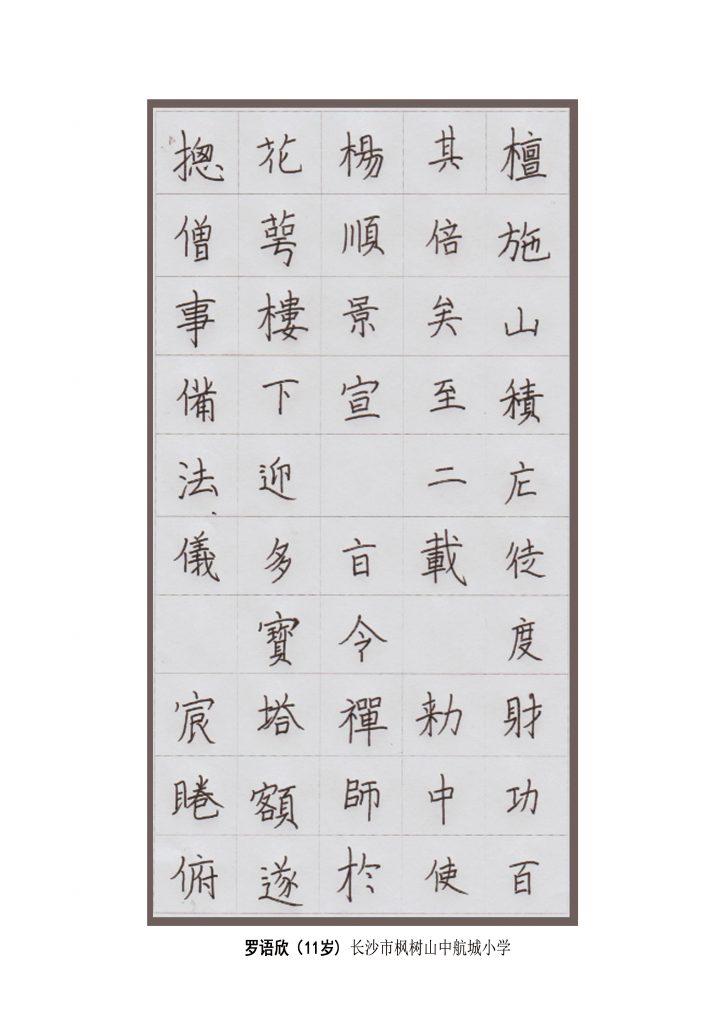 檀施山積庀徒度財功百
其倍矣至二載 勑中使
楊順景宣 旨令禪師於
花萼樓下迎多寶塔額遂
摠僧事備法儀 宸睠俯
罗语欣（11岁）长沙市枫树山中航城小学